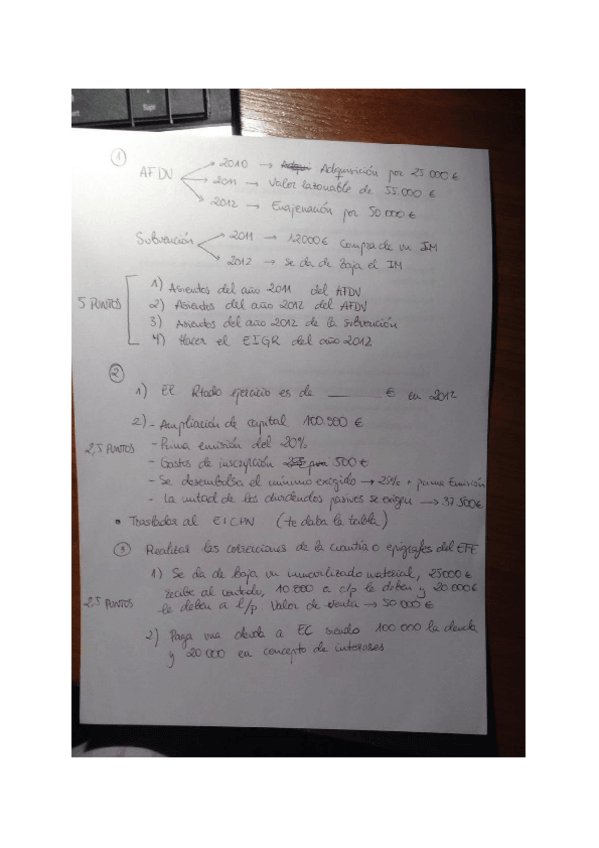 ①
AFDV
2010 → Adquisición por 25 000 €
2011 → Valor razonable de 55.000 €
2012 → Enajenación por 50 000 €
Subvención
2011 → 12000€ Compra de un IM
2012 → se da de baja el IM
5 PUNTOS
1) Asientos del año 2011 del AFDV
2) Asientos del año 2012 del AFDV
3) Asientos del año 2012 de la subvención
4) Hacer el EIGR del año 2012
②
1) El Rtado ejercicio es de ______ € en 2012
2) - Ampliación de capital 100.000 €
- Prima emisión del 20%
2,5 PUNTOS
- Gastos de inscripción 500 €
- Se desembolsa el mínimo exigido → 25% + prima Emisión
- La mitad de los dividendos pasivos se exigen → 37.500€
• Trasladar al ECPN (te daba la tabla)
③ Realizar las correcciones de la cuantía o epígrafes del EFE
1) Se da de baja un inmovilizado material, 25000 €
recibe al contado, 10 000 a c/p le deben y 20 000 €
2,5 PUNTOS
le deben a l/p. Valor de venta → 50 000 €
2) Paga una deuda a EC siendo 100 000 la deuda
y 20 000 en concepto de intereses